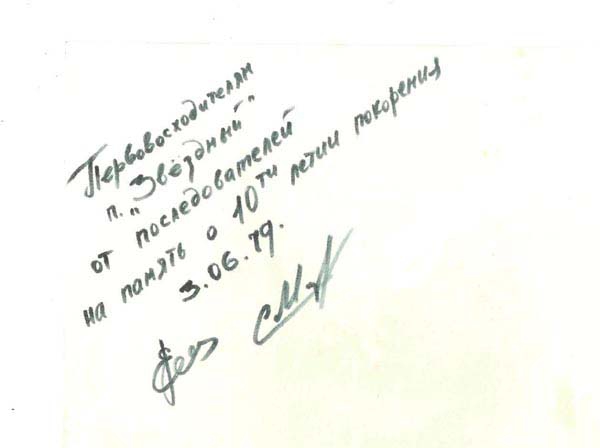 Первовосходителям
п. "Звёздный"
от последователей
на память о 10ти летии покорения
3.06.79.